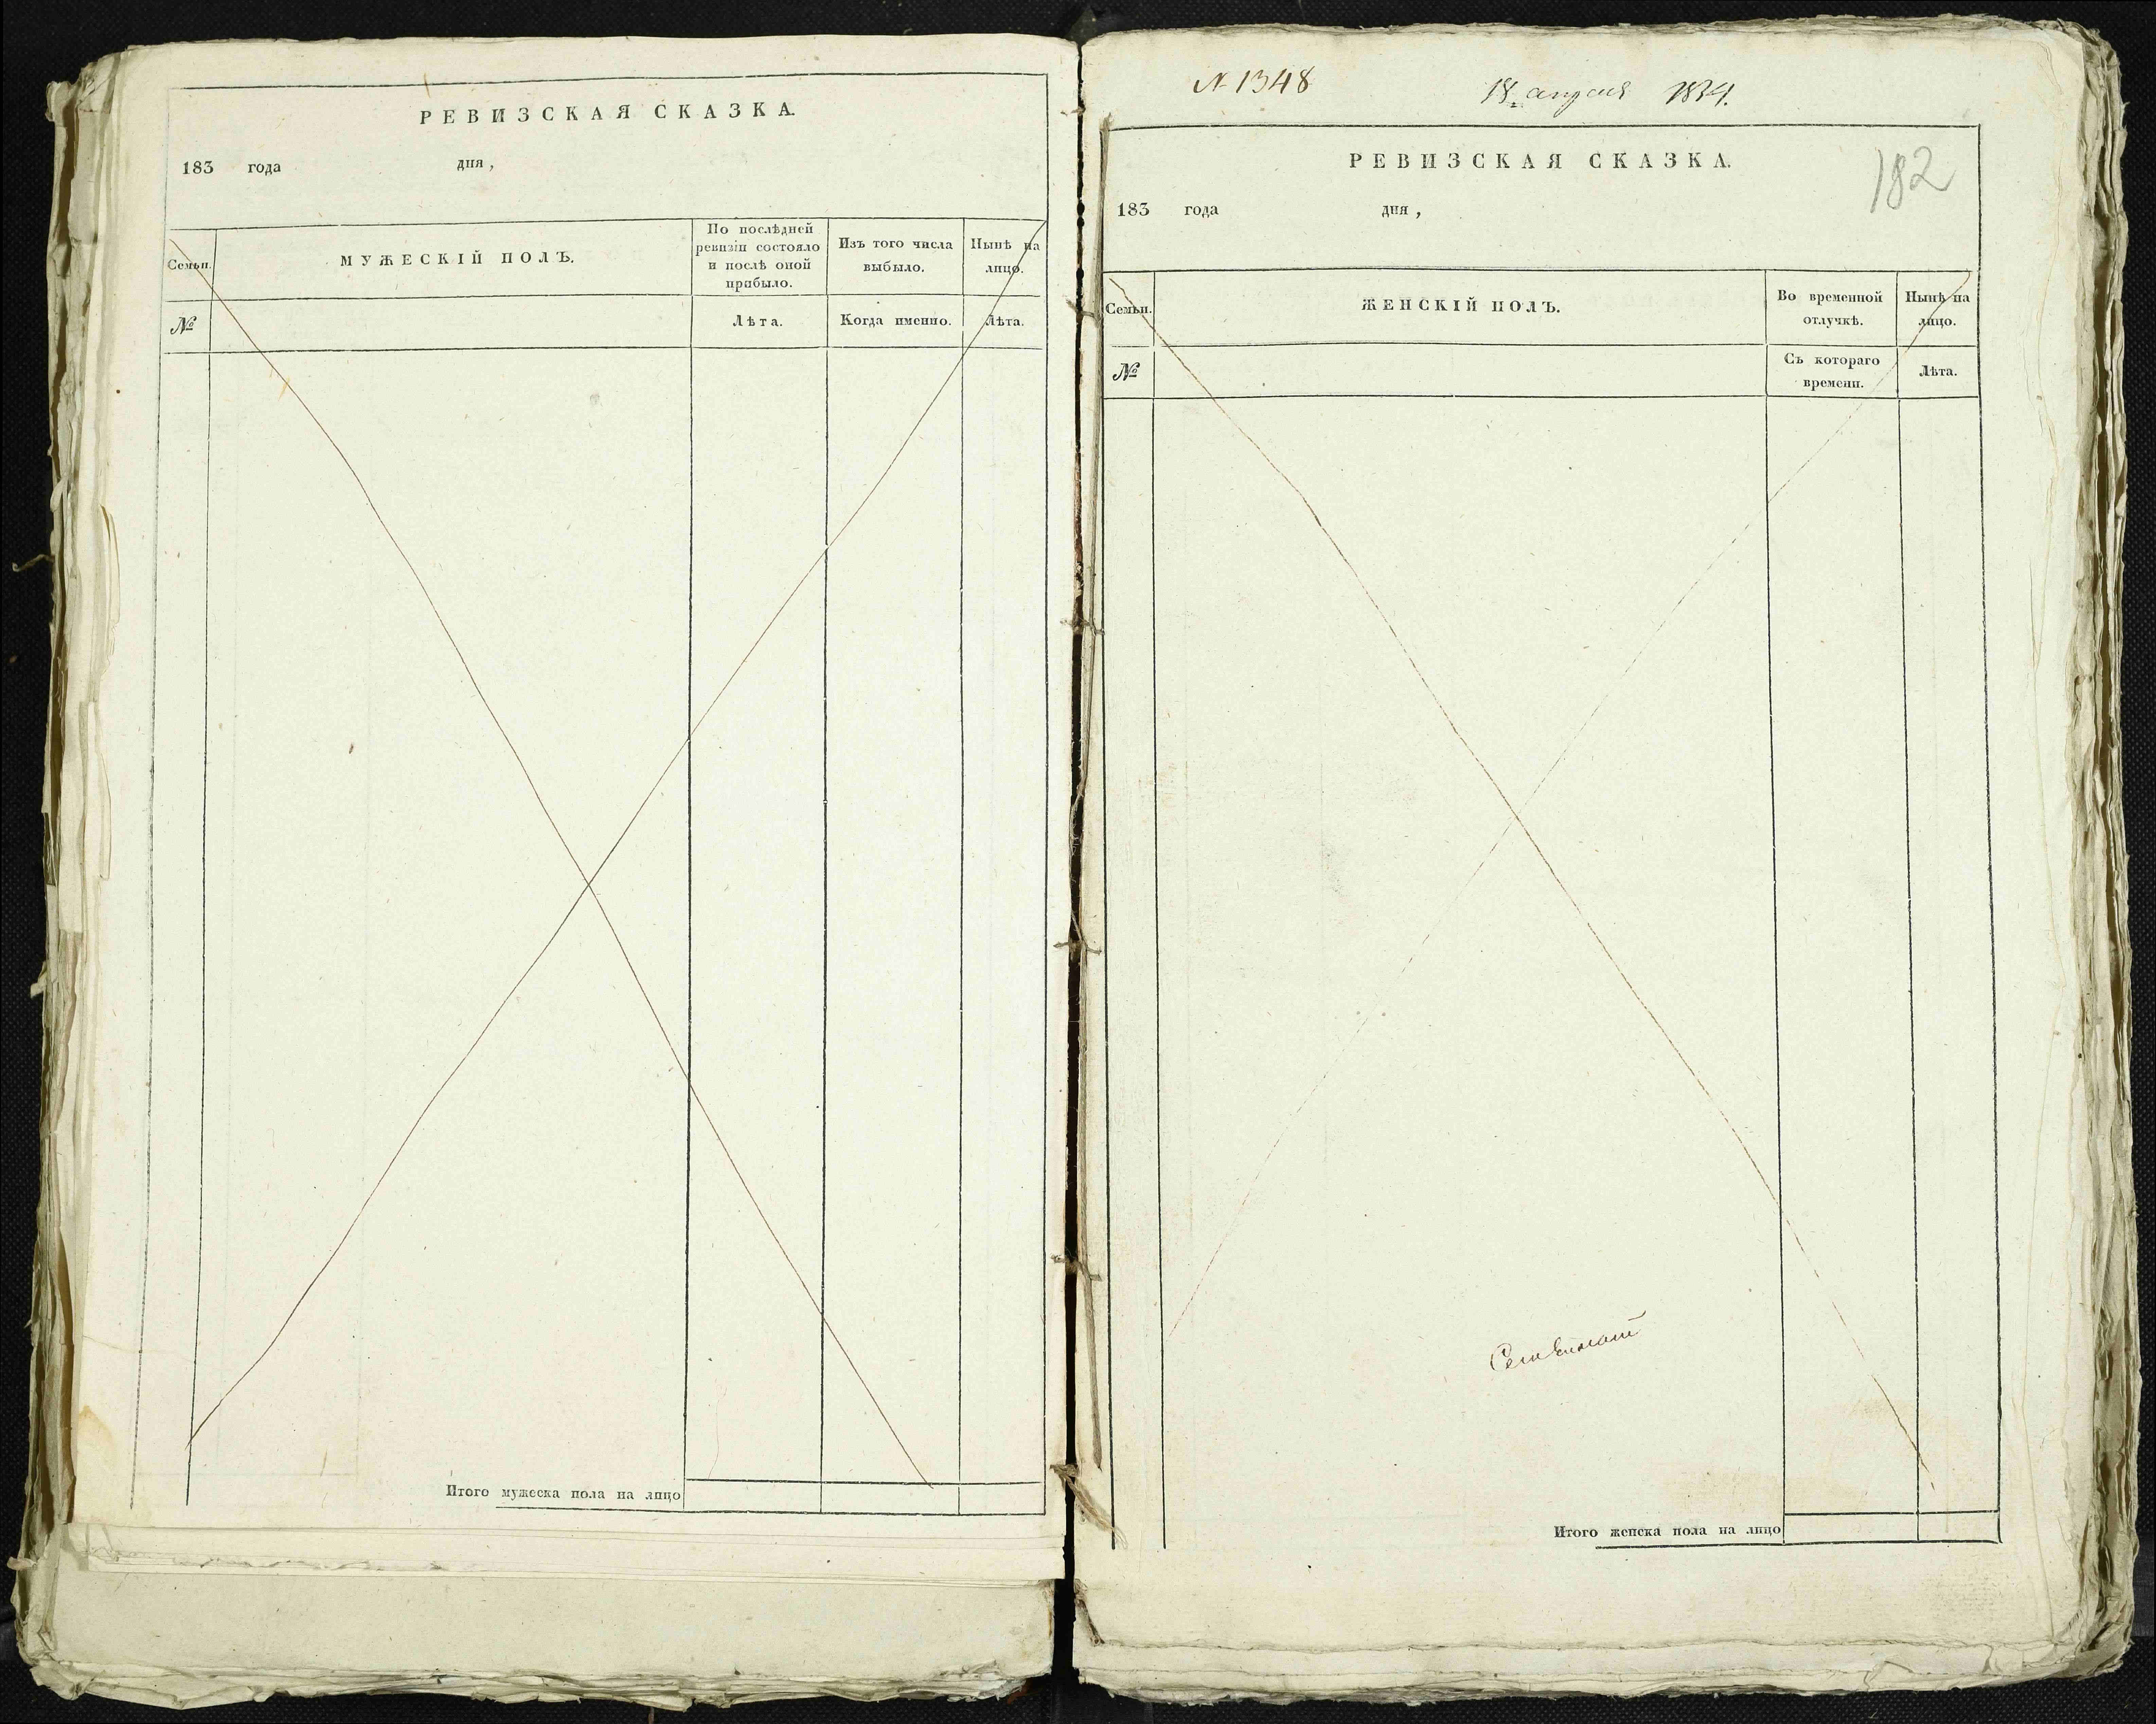 РЕВИЗСКАЯ СКАЗКА.
183 года дня,
Семьи.
МУЖЕСКІЙ ПОЛЪ.
По послѣдней
ревизіи состояло
и послѣ оной
прибыло.
Изъ того числа
выбыло.
Нынѣ на
лицо.
№
Лѣта.
Когда именно.
Лѣта.
Итого мужеска пола на лицо
№ 1348 18 апреля 1834.
РЕВИЗСКАЯ СКАЗКА.
182
183 года дня,
Семьи.
ЖЕНСКІЙ ПОЛЪ.
Во временной
отлучкѣ.
Нынѣ на
лицо.
№
Съ котораго
времени.
Лѣта.
Итого женска пола на лицо